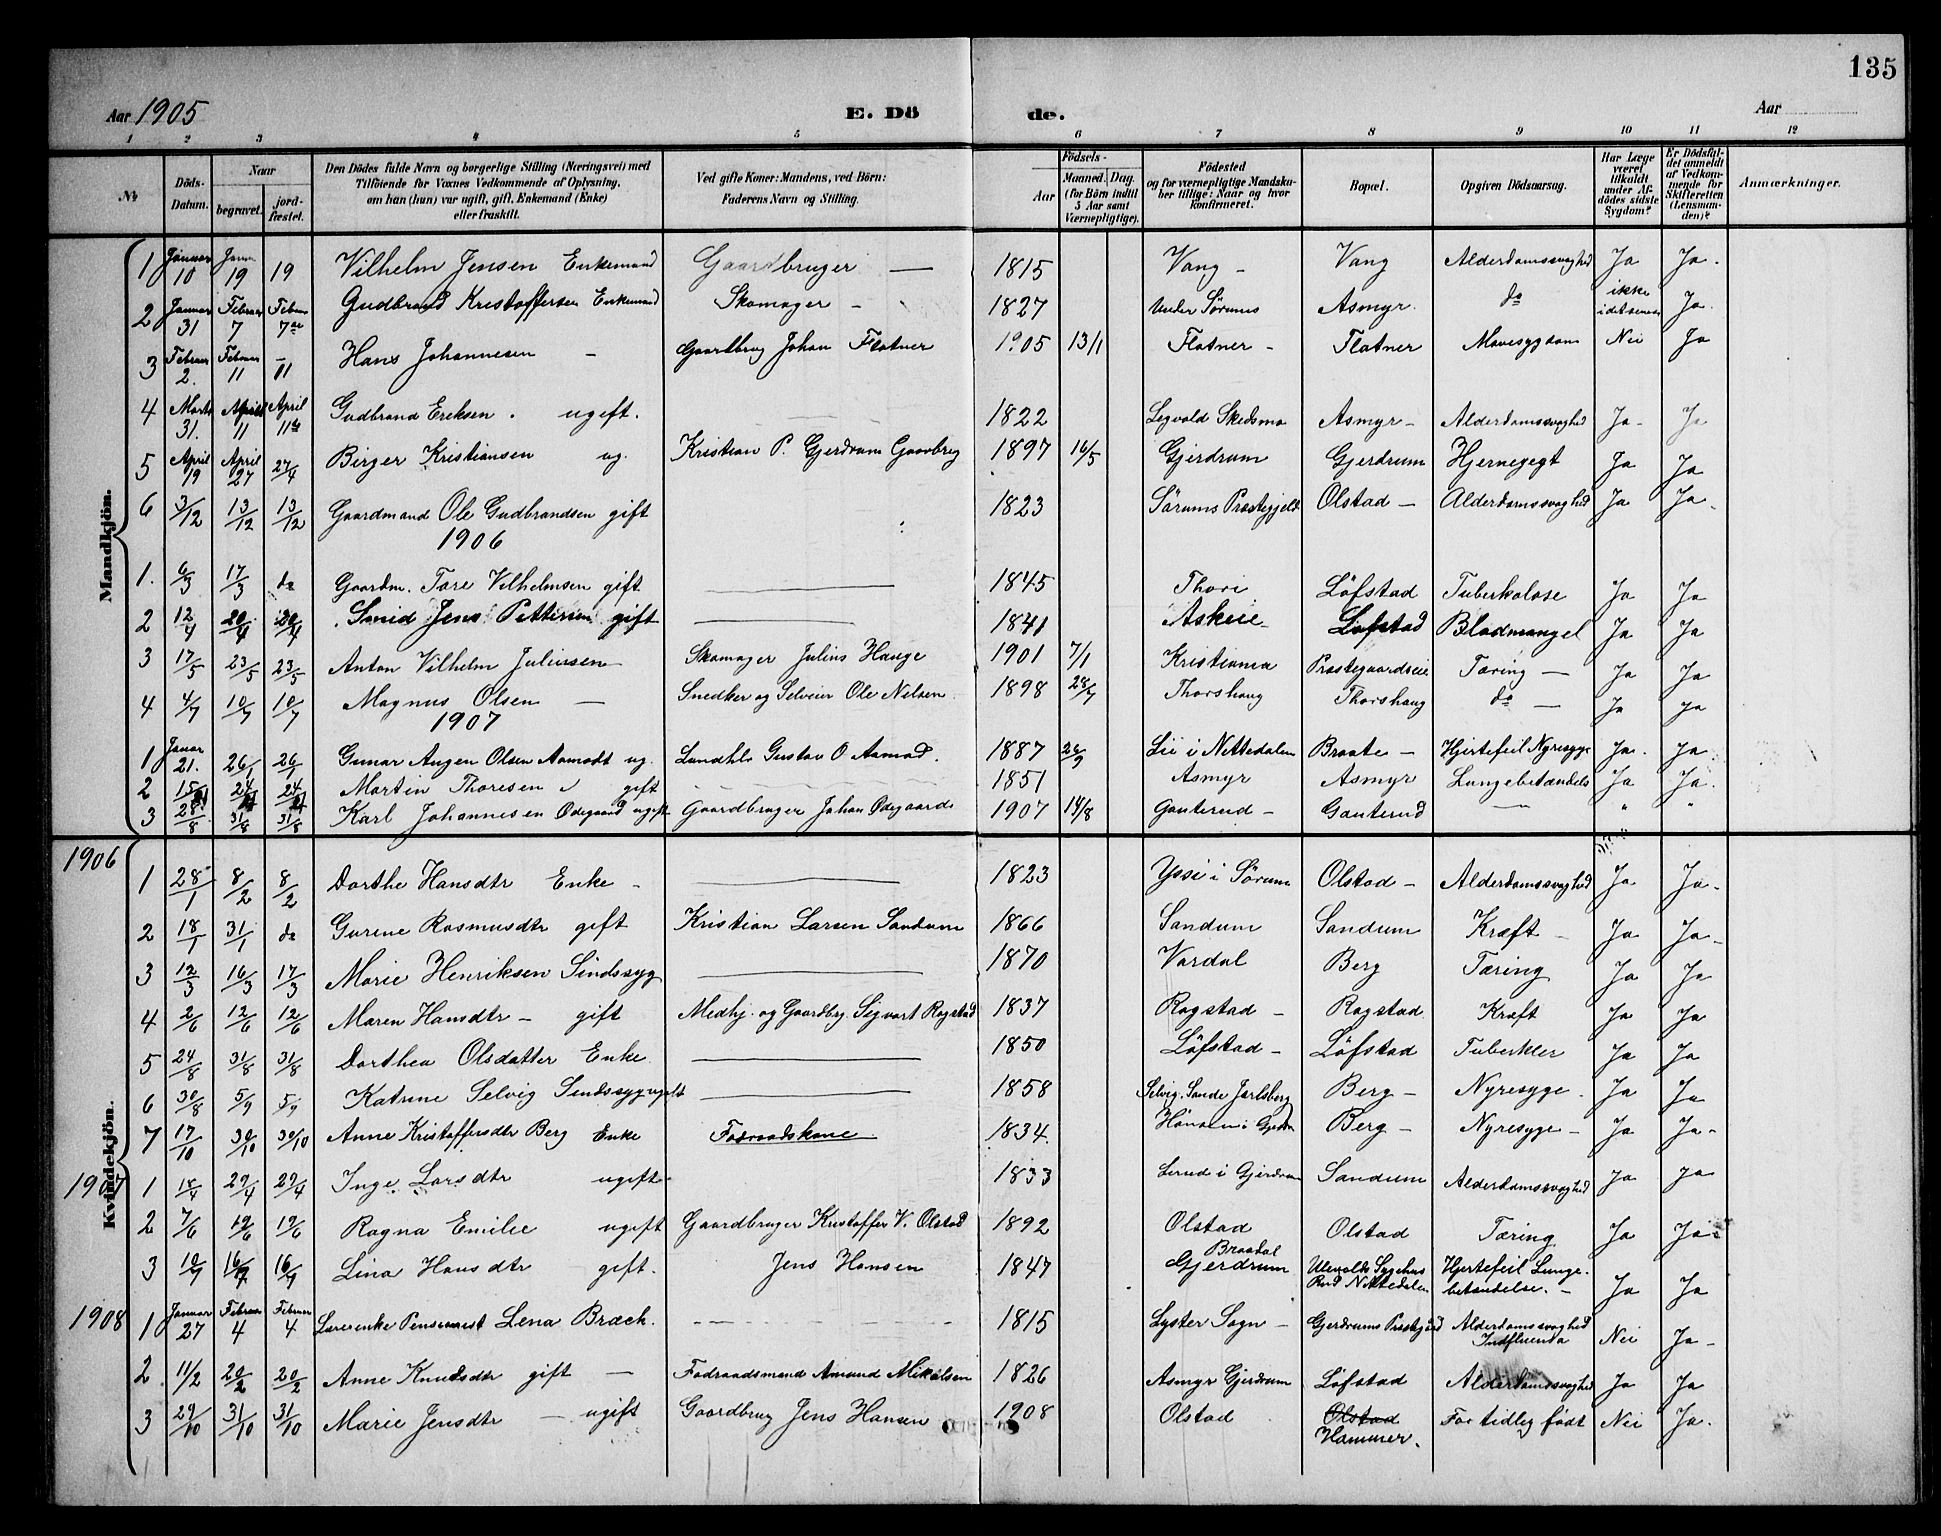 135
Aar 1905 E. Dö de. Aar
1 2 3 4 5 6 7 8 9 10 11 12
№ Döds-Datum. Naar begravet. jordfæstet. Den Dödes fulde Navn og borgerlige Stilling (Næringsvei) med Tilföiende för Voxnes Vedkommende af Oplysning, om han (hun) var ugift, gift, Enkemand (Enke) eller fraskilt. Ved gifte Koner: Mandens, ved Börn: Faderens Navn og Stilling. Födsels- Aar Maaned. Dag. (for Börn indtil 5 Aar samt Værnepligtige). Födested og for værnepligtige Mandskaber tillige: Naar og hvor konfirmeret. Bopæl. Opgiven Dödsaarsag. Har Læge været tilkaldt under Afdödes sidste Sygdom? Er Dödsfaldet anmeldt af Vedkommende for Skifteretten (Lensmanden)? Anmærkninger.
Mandkjön.
1 Januar 10 Janu 19 19 Vilhelm Jensen Enkemand Gaardbruger — 1815 Vang - Vang Alderdomssvaghed Ja Ja.
2 Januar 31 Februar 7 Februar 7de Gudbrand Kristoffersen Enkemand Skomager - 1827 Under Sörums Asmyr. do ikke i det senere Ja.
3 Februar 2. Februar 11 - 11 Hans Johannesen - Gaardbrug Johan Flatner 1905 13/1 Flatner - Flatner Mavesygdom Nei Ja
4 Marts 31. April 11 April 11te Gudbrand Eriksen. ugift. — 1822 Legvold Skedsmo Asmyr - Alderdomssvaghed Ja - Ja
5 April 19 April 27 27/4 Birger Kristiansen ug. Kristian P. Gjerdrum Gaardbrg 1897 16/5 Gjerdrum Gjerdrum Hjernegigt Ja Ja
6 3/12 13/12 13/12 Gaardmand Ole Gudbrandsen gift 1823 Sörums Præstegjeld Olstad - Alderdomssvaghed Ja Ja.
1906
1. 6/3 17/3 do Gaardm. Tore Vilhelmsen gift — 1845 Thori Löfstad Tuberkolose Ja Ja
2 12/4 20/4 20/4 Smid Jens Pettersen gift — 1841 Askeie Löfstad Blodmangel Ja Ja
3 17/5 23/5 23/5 Anton Vilhelm Juliussen - Skomager Julius Hauge 1901 7/1 Kristiania Præstegaardseie Tæring — Ja Ja
4 4/7 10/7 10/7 Magnus Olsen — Snedker og Selveier Ole Nilsen 1898 28/7 Thorshaug Thorshaug do — Ja Ja
1907
1 Januar 21. 26/1 26/1 Gunar Augen Olsen Aamodt ug. Landhl. Gustav O Aamod. 1887 26/9 Lii i Nittedalen Braate - Hjertefeil Nyresyge Ja. Ja
2 15/ 24/ 24/ Martin Thoresen gift — 1851 Asmyr Asmyr Lungebetændels Ja Ja.
3 28/8 31/8 31/8 Karl Johannesen Ødegaard ugift Gaardbruger Johan Ødegaard 1907 14/8 Gauterud - Gauterud — " "
Kvindekjön.
1906
1 28/1 8/2 8/2 Dorthe Hansdtr Enke - — 1823 Yssi i Sörum Olstad - Alderdomssvaghed Ja Ja -
2 18/1 31/1 do Gurine Rasmusdtr gift Kristian Larsen Sandum 1866 Sandum Sandum Kræft - Ja Ja -
3 12/3 16/3 17/3 Marie Henriksen Sindssyg — 1870 Vardal Berg Tæring Ja Ja
4 2/6 12/6 12/6 Maren Hansdtr - gift Medhj. og Gaardbg. Sigvart Rogstad 1837 Rogstad - Rogstad Kræft Ja Ja
5 24/8 31/8 31/8 Dorthea Olsdatter Enke — 1850 Löfstad - Löfstad Tuberkler Ja Ja
6 30/8 5/9 5/9 Katrine Selvig Sindssyg ugift — 1858 Selvig. Sande Jarlsberg Berg - Nyresyge. Ja Ja
7 17/10 30/10 30/10 Anne Kristoffersdtr Berg Enke Föderaadskone 1834. Hönsen i Gjerdr Berg - Nyresyge - Ja Ja -
1907 1 18/4 29/4 29/4 Inge Larsdtr ugift - 1833 Lerud i Gjerdrum Sandum Alderdomssvaghed Ja Ja
2 7/6 19/6 19/6 Ragna Emilie ugift Gaardbruger Kristoffer V. Olstad 1892 Olstad Olstad Tæring Ja Ja
3 10/7 16/7 16/7 Lina Hansdtr gift. Jens Hansen 1847 Braadal Gjerdrum Ulevolds Sygehus Rud Nittedalen Hjertefeil Lungebetændelse. - Ja Ja
1908 1 Januar 27 Februar 4 Februar 4 Lærerenke Pensionist Lena Bræch. — 1815 Lyster Sogn - Gjerdrums Præstgjeld Alderdomssvaghed Indfluenza Nei Ja -
2 11/2 20/2 20/2 Anne Knudsdtr gift — Föderaadsmand Amund Mikalsen 1826 Asmyr Gjerdrum Löfstad Alderdomssvaghed Ja Ja
3 29/10 31/10 31/10 Marie Jensdtr - ugift Gaardbrug Jens Hansen 1908 Olstad Olstad Hammer. For tidlig född Nei Ja.